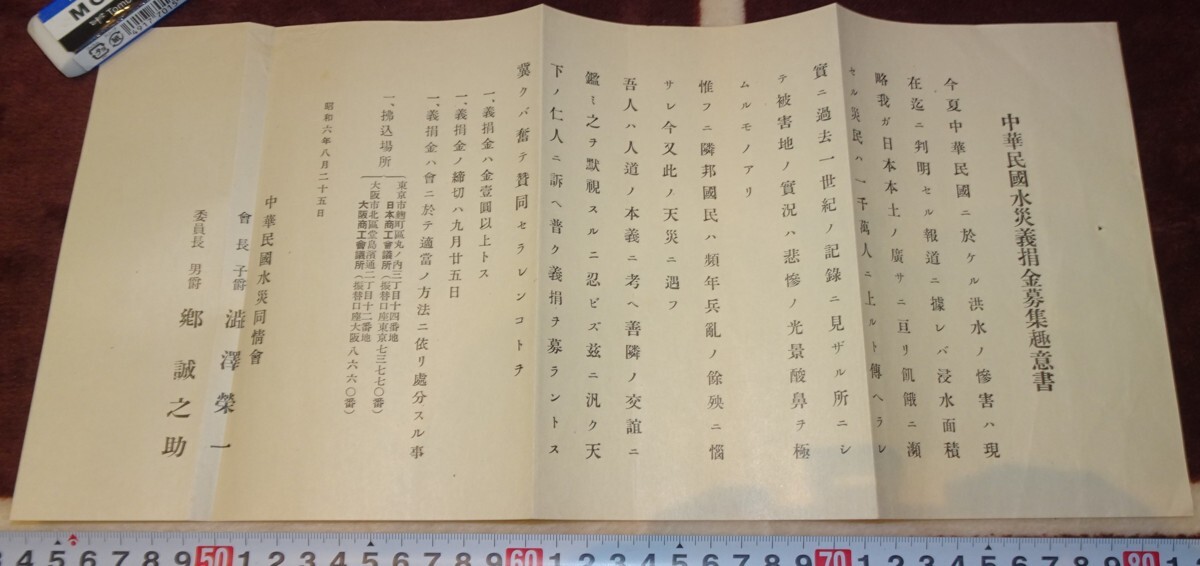 中華民國水災義捐金募集趣意書
今夏中華民國ニ於ケル洪水ノ慘害ハ現
在迄ニ判明セル報道ニ據レバ浸水面積
略我ガ日本本土ノ廣サニ亘リ飢餓ニ瀕
セル災民ハ一千萬人ニ上ルト傳ヘラレ
實ニ過去一世紀ノ記錄ニ見ザル所ニシ
テ被害地ノ實況ハ悲慘ノ光景酸鼻ヲ極
ムルモノアリ
惟フニ隣邦國民ハ頻年兵亂ノ餘殃ニ惱
サレ今又此ノ天災ニ遇フ
吾人ハ人道ノ本義ニ考ヘ善隣ノ交誼ニ
鑑ミ之ヲ默視スルニ忍ビズ茲ニ汎ク天
下ノ仁人ニ訴ヘ普ク義捐ヲ募ラントス
冀クバ奮テ贊同セラレンコトヲ
一、義捐金ハ金壹圓以上トス
一、義捐金ノ締切ハ九月廿五日
一、義捐金ハ會ニ於テ適當ノ方法ニ依リ處分スル事
一、拂込場所
東京市麴町區丸ノ內三丁目十四番地
日本商工會議所(振替口座東京七三七七〇番)
大阪市北區堂島濱通二丁目十二番地
大阪商工會議所(振替口座大阪八六六〇番)
昭和六年八月二十五日
中華民國水災同情會
會長 子爵 澁澤榮一
委員長 男爵 鄕誠之助
MO
Tomb